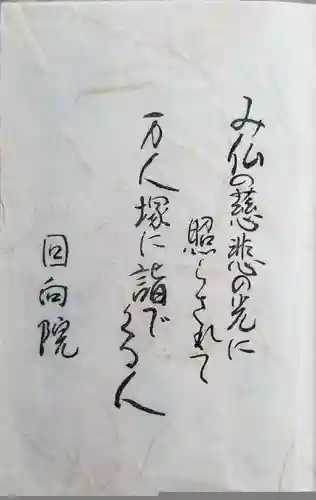 み仏の慈悲の光に
照らされて
万人塚に詣でくる人
回向院